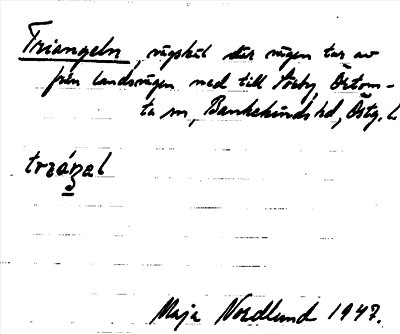 Triangeln, vägskäl där vägen tar av
från landsvägen ned till Åsby, Örtom-
ta sn, Bankekinds hd, Östg. l.
trzáŋəl
Maja Nordlund 1947.